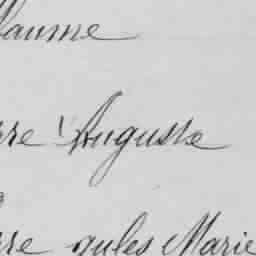 llaume
rre Auguste
rre Jules Marie